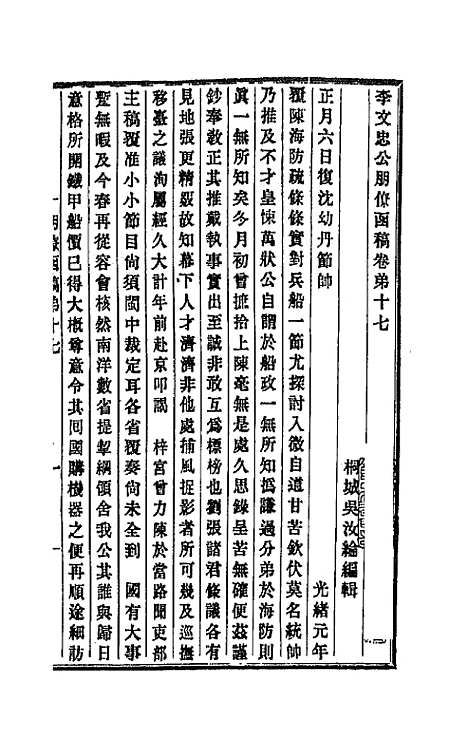 李文忠公朋僚函稿卷弟十七
桐城吳汝綸編輯
光緒元年
正月六日復沈幼丹節帥
覆陳海防疏條條實對兵船一節尤探討入微自道甘苦欽伏莫名統帥
乃推及不才皇悚萬狀公自謂於船政一無所知撝謙過分弟於海防則
眞一無所知矣冬月初曾摭拾上陳毫無是處久思錄呈苦無確便茲謹
鈔奉敎正其推戴執事實出至誠非敢互爲標榜也劉張諸君條議各有
見地張更精覈故知幕下人才濟濟非他處捕風捉影者所可幾及巡撫
移臺之議洵屬經久大計年前赴京叩謁　梓宮曾力陳於當路聞吏部
主稿覆准小小節目尙須閩中裁定耳各省覆奏尙未全到　國有大事
暫無暇及今春再從容會核然南洋數省提挈綱領舍我公其誰與歸日
意格所開鐵甲船價已得大槪尊意令其同國購機器之便再順途細訪